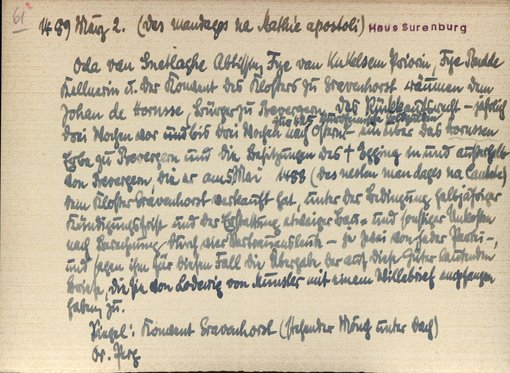 61
1489 März 2. (des mandages na Mathie apostoli) Haus Surenburg
Oda van Snetlaghe Abtissin, Fye van Knkelsem Priorin, Fye Budde
Kellnerin u. der Konvent des Klosters zu Gravenhorst räumen dem
Johan de Hornsse, Bürger zu Bevergern, das Rückkaufsrecht – jährlich
drei Wochen vor und bis drei Wochen nach Ostern – ein über das Hornssen
Erbe zu Bevergern und die Besitzungen des † Egging in und außerhalb
von Bevergern, die er am 5. Mai 1488 (des nesten mandages na Cantate)
dem Kloster Gravenhorst verkauft hat, unter der Bedingung halbjähriger
Kündigungsfrist und der Erstattung etwaiger Bau- und sonstiger Unkosten
nach Berechnung durch vier Vertrauensleute – je zwei von jeder Partei –,
und sagen ihm für diesen Fall die Übergabe der auf diese Güter lautenden
Briefe, die sie von Lodewig von Munster mit einem Willebrief empfangen
haben zu.
Siegel: Konvent Gravenhorst (stehender Mönch unter Dach)
Or. Perg.